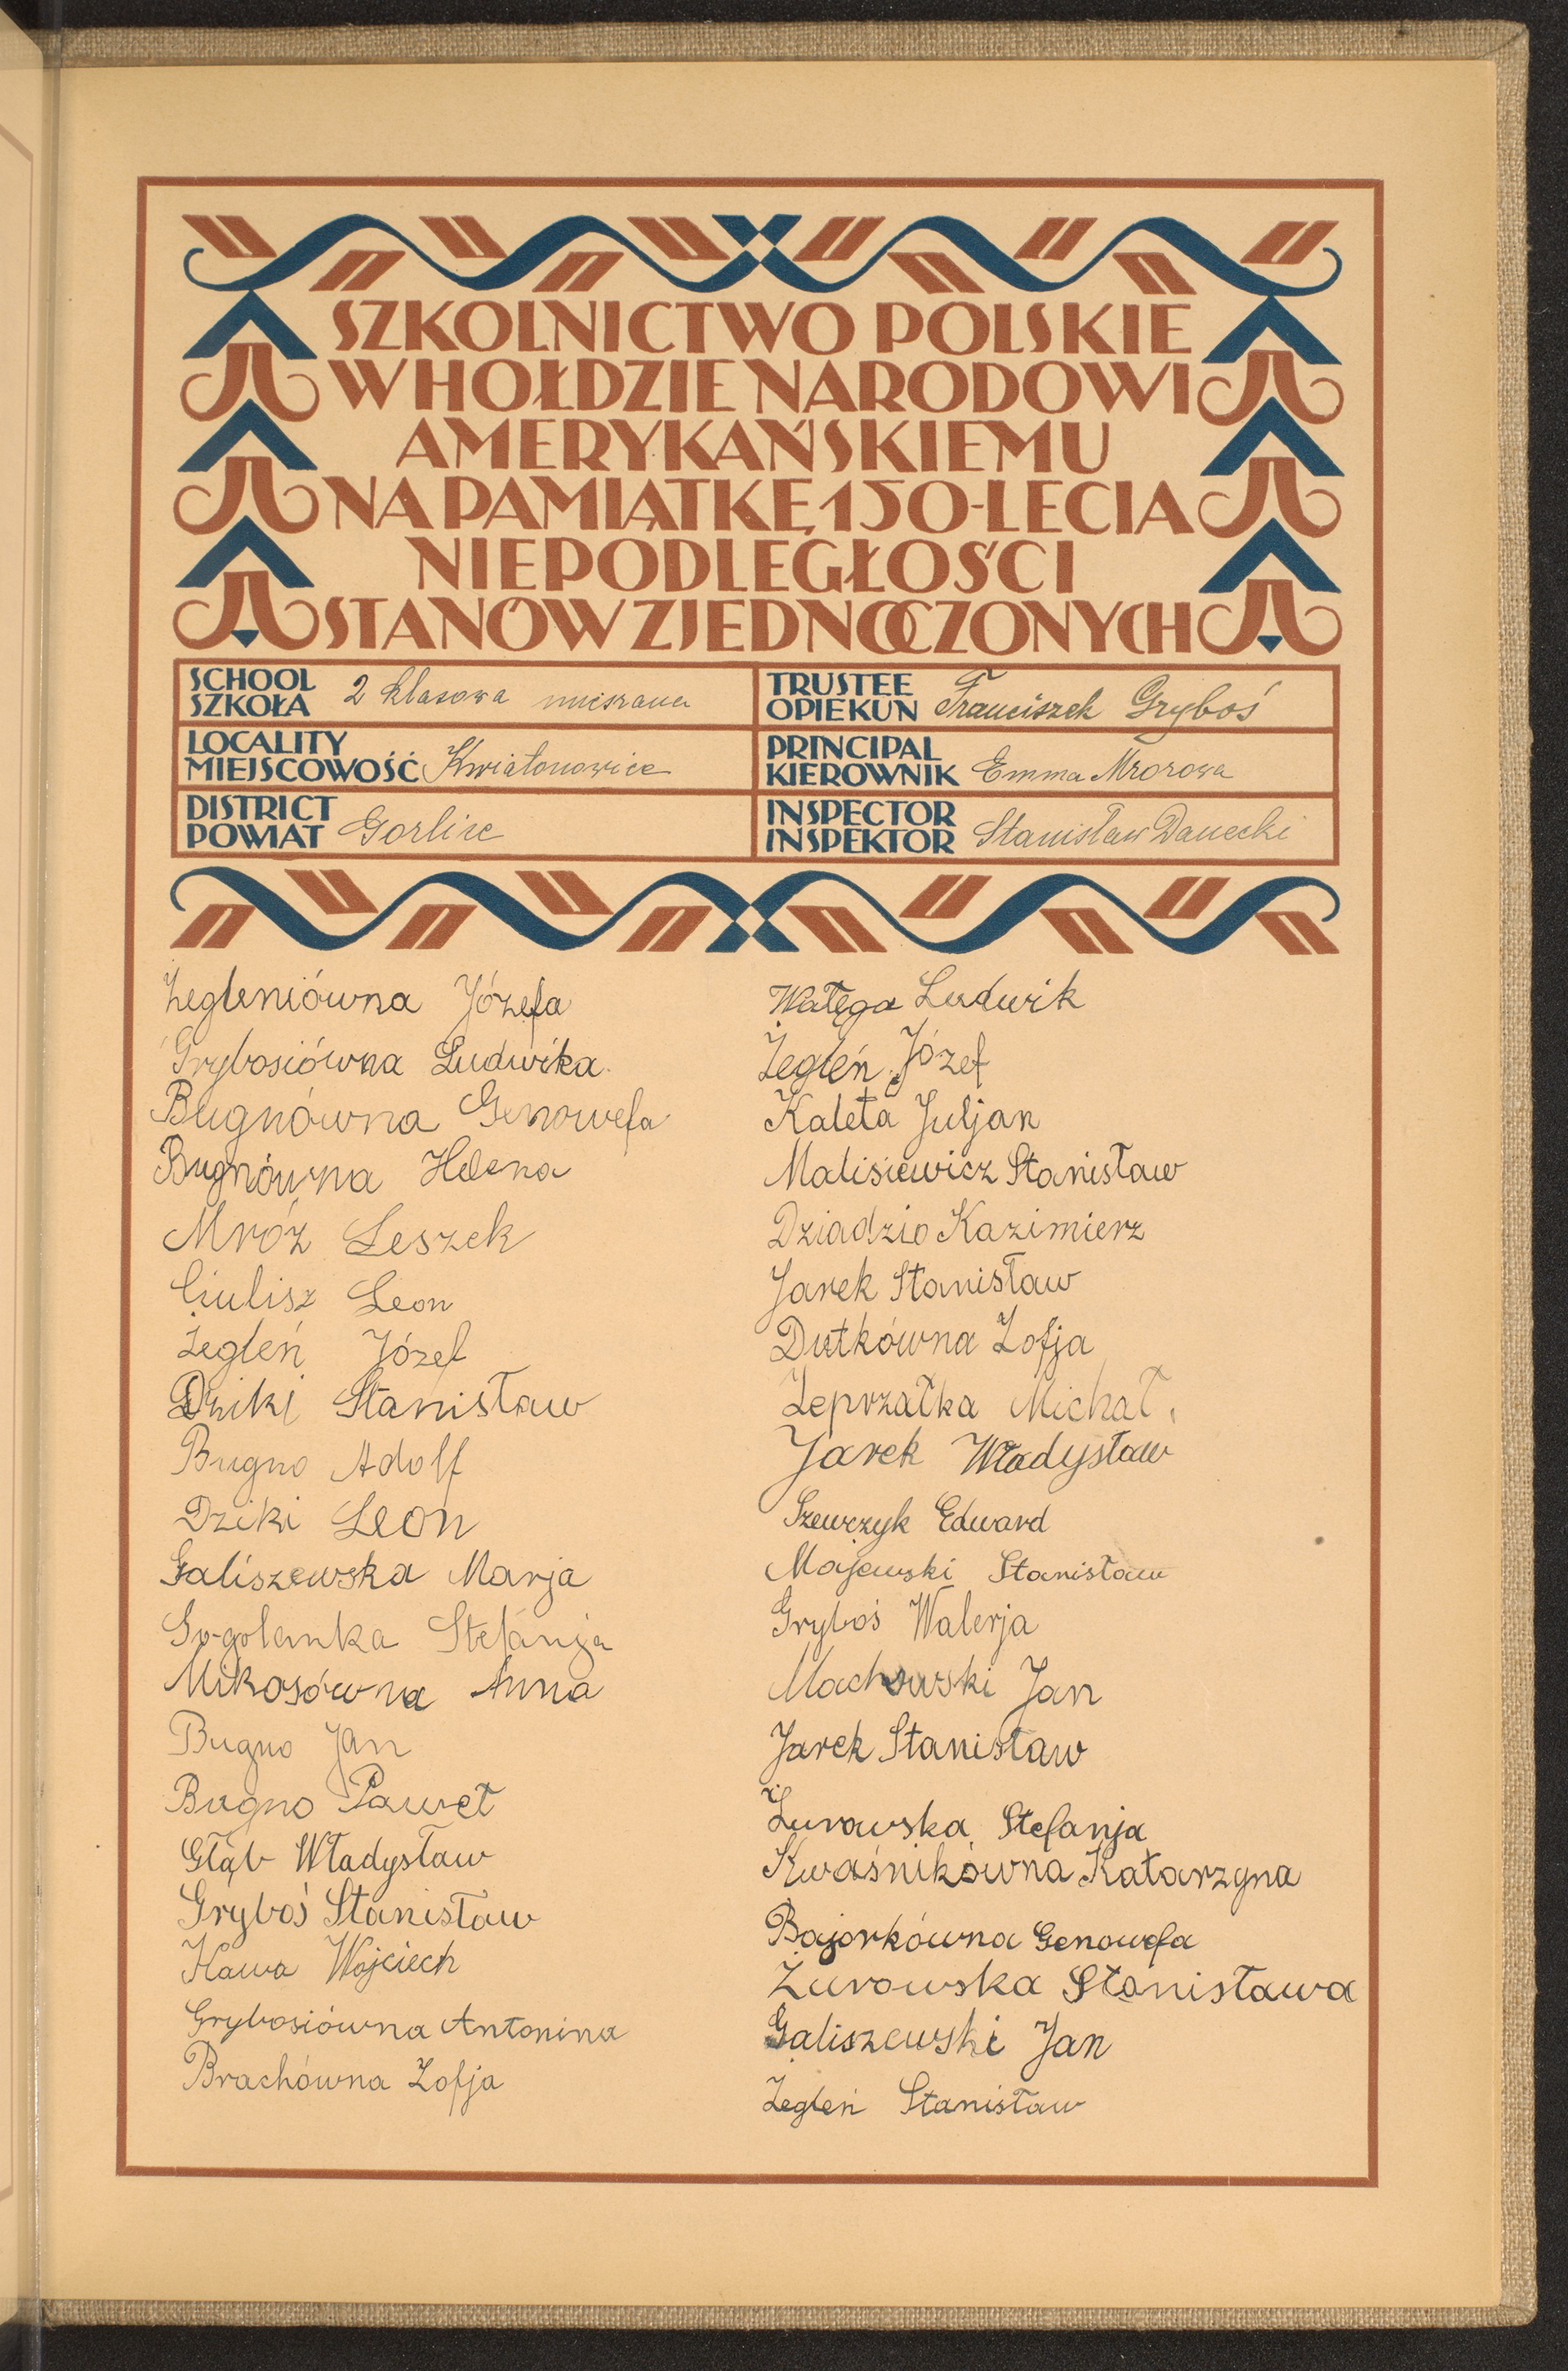 SZKOLNICTWO POLSKIE
W HOŁDZIE NARODOWI
AMERYKAŃSKIEMU
NA PAMIĄTKĘ 150-LECIA
NIEPODLEGŁOŚCI
STANÓW ZJEDNOCZONYCH
SCHOOL
SZKOŁA 2 klasowa mieszana
TRUSTEE
OPIEKUN Franciszek Gryboś
LOCALITY
MIEJSCOWOŚĆ Kwiatonowice
PRINCIPAL
KIEROWNIK Emma Mrozowa
DISTRICT
POWIAT Gorlice
INSPECTOR
INSPEKTOR Stanisław Danecki
Żegleniówna Józefa
Grybosiówna Ludwika
Bugnówna Genowefa
Bugnówna Helena
Mróz Leszek
Ciulisz Leon
Żegleń Józef
Dziki Stanisław
Bugno Adolf
Dziki Leon
Galiszewska Marja
Gogolanka Stefanja
Mikosówna Anna
Bugno Jan
Bugno Paweł
Głąb Władysław
Gryboś Stanisław
Kawa Wojciech
Grybosiówna Antonina
Brachówna Zofja
Wałęga Ludwik
Żegleń Józef
Kaleta Juljan
Malisiewicz Stanisław
Dziadzio Kazimierz
Jarek Stanisław
Dutkówna Zofja
Zeprzałka Michał
Jarek Władysław
Szewczyk Edward
Majewski Stanisław
Gryboś Walerja
Machowski Jan
Jarek Stanisław
Żurowska Stefanja
Kwaśnikówna Katarzyna
Bajorkówna Genowefa
Żurowska Stanisława
Galiszewski Jan
Żegleń Stanisław